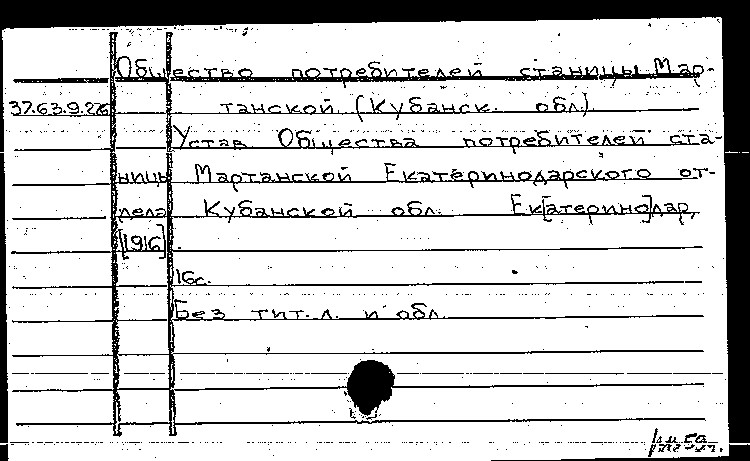 Общество потребителей станицы Мар-
37.63.9.226 танской (Кубанск. обл.).
Устав Общества потребителей ста-
ницы Мартанской Екатеринодарского от-
дела Кубанской обл. Ек[атерино]дар,
[1916].
16с.
Без тит. л. и обл.